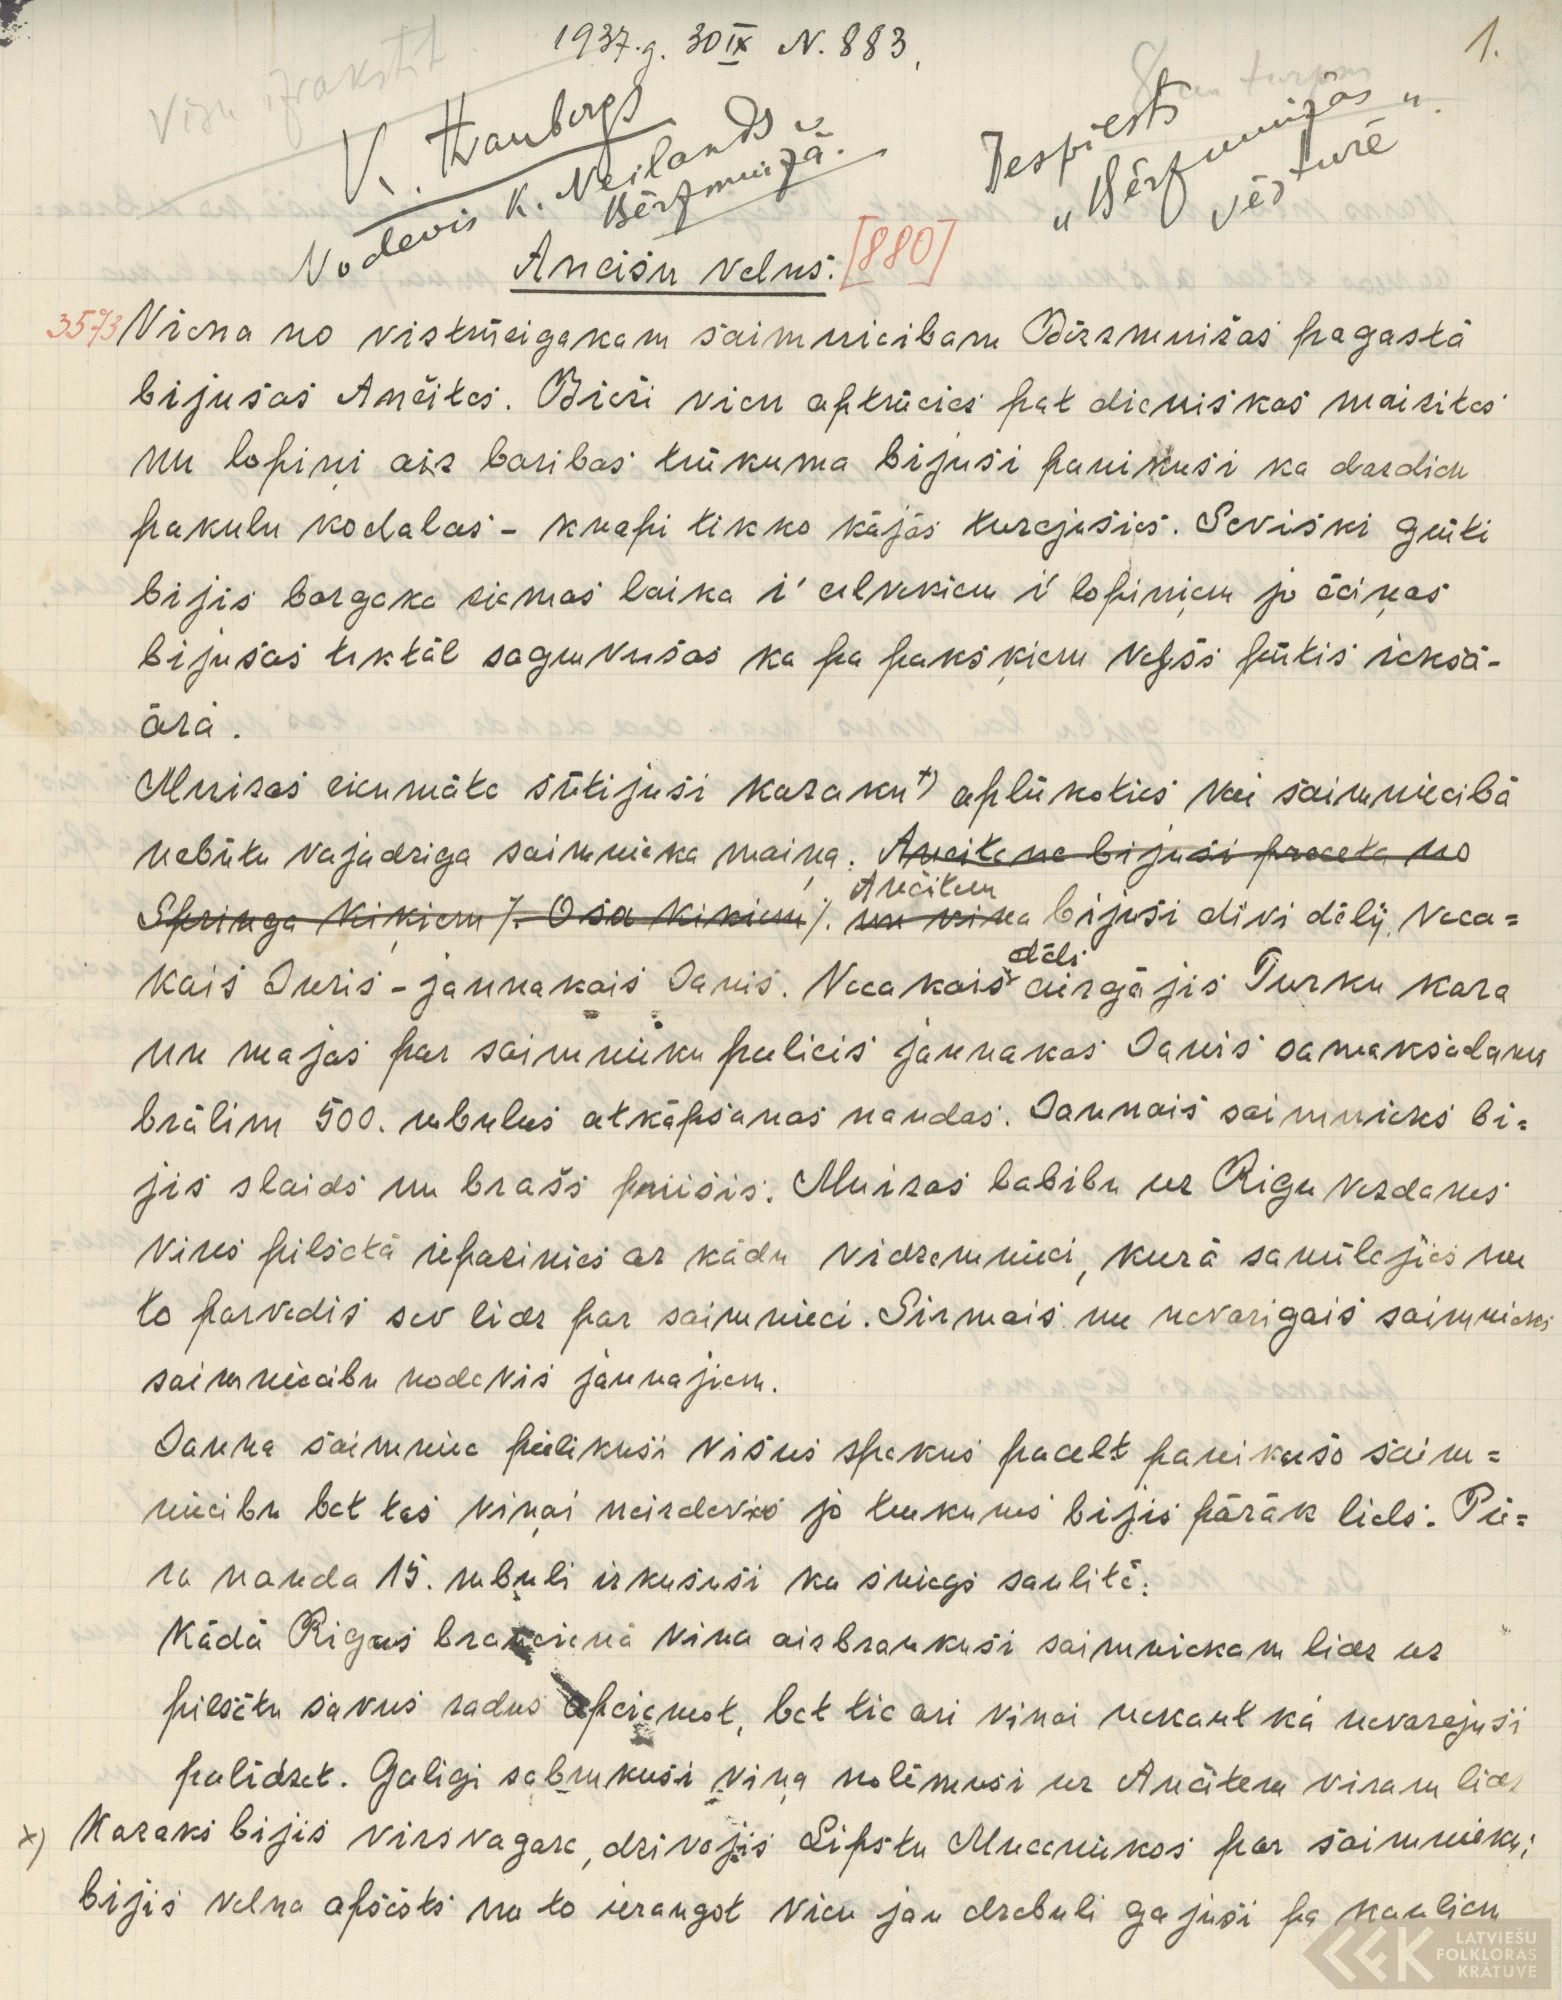 1937.g. 30 IX N. 883.
1.
Visu izrakstīt
K. Straubergs
Nodevis K. Neilands
Bērzmuižā.
Iespiests
"Bērzmuižas
vēsturē"
Ancišu velns. [880]
3573 Viena no vistrūcigakam saimniecibam Bērzmuižas pagastā
bijušas Ančites. Bieži vien aptrūcies pat dieniskas maizites
un lopiņi aiz baribas trūkuma bijuši panikuši ka dardien
pakulu kodalas - knapi tikko kājās turejušies. Seviski grūti
bijis bargaka ziemas laika i' cilvekiem i' lopiņiem jo ēciņas
bijušas tiktāl sagruvušas ka pa pakškiem vejšs pūtis iekšā-
ārā.
Muižas cienmāte sūtijusi kazaku+) aplūkoties vai saimniecibā
nebūtu vajadziga saimnieka maiņa. Ancitene bijusi preceta no
Springa Kikiem /. Osa kikiem /. un vina Ančitem bijuši divi dēli, veca=
kais Juris - jaunakais Janis. Vecakais dēls aizgājis Turku kara
un majas par saimnieku palicis jaunakas Janis samaksadams
brālim 500. rubulus atkāpšanas naudas. Jaunais saimnieks bi=
jis slaids un brašs puisis. Muižas labibu uz Rigu vezdams
vins pilsētā iepazinies ar kādu vidzemnieci, kurā samilejies un
to parvedis sev lidz par saimnieci. Sirmais un nevarigais saimnieks
saimniecibu nodevis jaunajiem.
Jauna saimniece pielikusi visus spekus pacelt panikušo saim=
niecibu bet tas viņai neizdevies jo trukums bijis pārāk liels. Pie=
ra nauda 15. rubuli izkususi ka sniegs saulitē.
Kādā Rigas braucienā vina aizbraukusi saimniekam lidz uz
pilsētu savus radus apciemot, bet tie ari vinai nekant kā nevarejuši
palidzet. Galigi sabrukusi viņa nolēmusi uz Ančitem viram lidz
x) Kazaks bijis virsvagare, dzivojis Lipstu Muceniekos par saimnieku;
bijis velna apsēsts un to ieraugot vien jau drebuli gajuši pa kauliem
LATVIEŠU
FOLKLORAS
KRĀTUVE